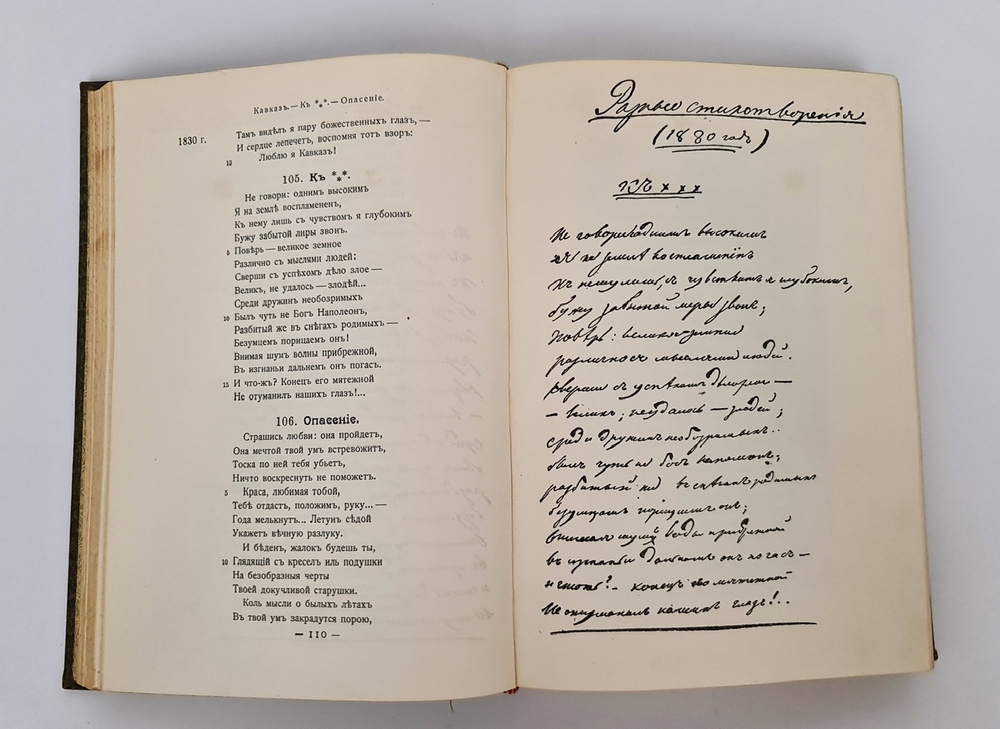 Кавказъ.—Къ ***.—Опасеніе.
1830 г.
Тамъ видѣлъ я пару божественныхъ глазъ, —
И сердце лепечетъ, воспомня тотъ взоръ:
10 Люблю я Кавказъ!
105. Къ ***.
Не говори: однимъ высокимъ
Я на землѣ воспламененъ,
Къ нему лишь съ чувствомъ я глубокимъ
Бужу забытой лиры звонъ.
5 Повѣрь — великое земное
Различно съ мыслями людей:
Сверши съ успѣхомъ дѣло злое —
Великъ, не удалось — злодѣй...
Среди дружинъ необозримыхъ
10 Былъ чуть не Богъ Наполеонъ,
Разбитый же въ снѣгахъ родимыхъ —
Безумцемъ порицаемъ онъ!
Внимая шумъ волны прибрежной,
Въ изгнаньи дальнемъ онъ погасъ.
15 И что-жъ? Конецъ его мятежной
Не отуманилъ нашихъ глазъ!...
106. Опасеніе.
Страшись любви: она пройдетъ,
Она мечтой твой умъ встревожитъ,
Тоска по ней тебя убьетъ,
Ничто воскреснуть не поможетъ.
5 Краса, любимая тобой,
Тебѣ отдастъ, положимъ, руку... —
Года мелькнутъ... Летунъ сѣдой
Укажетъ вѣчную разлуку.
И бѣденъ, жалокъ будешь ты,
10 Глядящій съ креселъ иль подушки
На безобразныя черты
Твоей докучливой старушки.
Коль мысли о былыхъ лѣтахъ
Въ твой умъ закрадутся порою,
— 110 —
Разные стихотворенія
(1830 годъ)
Къ х х х
Не говори: однимъ высокимъ
я на землѣ воспламенѣнъ
къ нему лишь съ чувствомъ я глубокимъ,
бужу забытой лиры звонъ;
повѣрь: великое земное
различно съ мыслями людей.
сверши съ успѣхомъ дѣло злое —
— великъ; неудалось — злодѣй;
среди дружинъ необозримыхъ..
былъ чуть не богъ наполеонъ;
разбитый же въ снѣгахъ родимыхъ
безумцомъ порицаемъ онъ;
внимая шумъ воды прибрежной
въ изгнаньи дальномъ онъ погасъ —
и чтожъ? — конецъ его мятежной
Не отуманилъ нашихъ глазъ!..